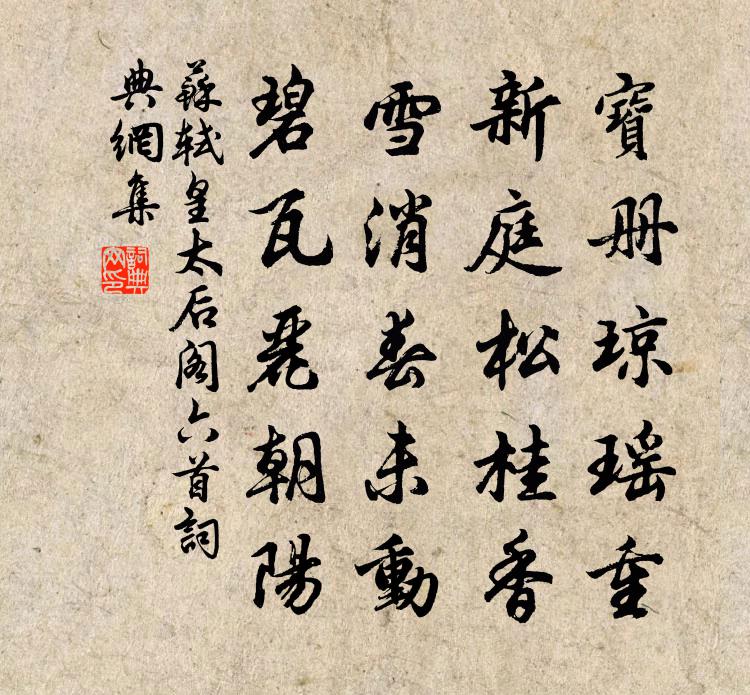 寶册琼瑶重
新庭松桂香
雪消春未動
碧瓦麗朝陽
蘇軾皇太后阁六首詞
典網集
詞典
网印